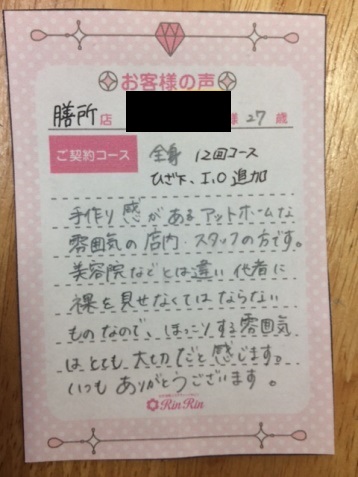 お客様の声
膳所店 様 27歳
ご契約コース 全身 12回コース
ひざ下、I.O 追加
手作り感があるアットホームな
雰囲気の店内・スタッフの方です。
美容院などとは違い他者に
裸を見せなくてはならない
ものなので、ほっこりする雰囲気
はとても大切だと感じます。
いつもありがとうございます。
RinRin